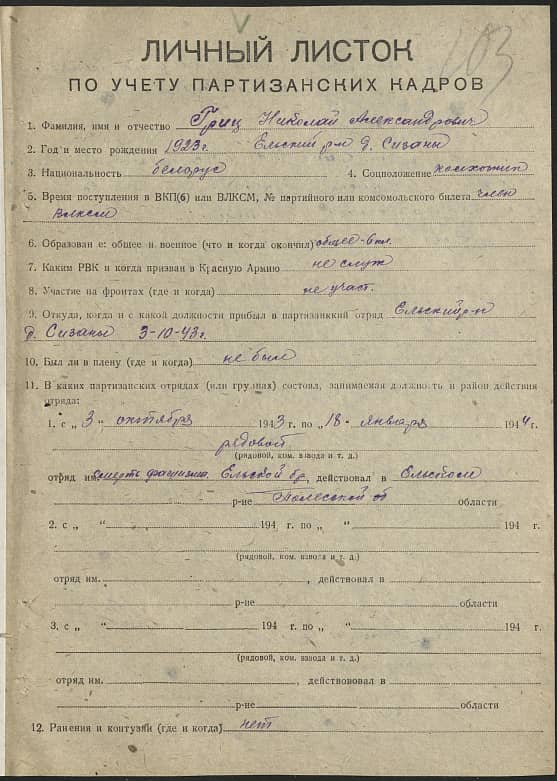 103
ЛИЧНЫЙ ЛИСТОК
ПО УЧЕТУ ПАРТИЗАНСКИХ КАДРОВ
1. Фамилия, имя и отчество Гриц Николай Александрович
2. Год и место рождения 1923г. Ельский р-н д. Сизаны
3. Национальность белорус 4. Соцположение колхозник
5. Время поступления в ВКП(б) или ВЛКСМ, № партийного или комсомольского билета член
ВЛКСМ
6. Образован е: общее и военное (что и когда окончил) общее - 6 кл.
7. Каким РВК и когда призван в Красную Армию не служ
8. Участие на фронтах (где и когда) не участ.
9. Откуда, когда и с какой должности прибыл в партизанский отряд Ельский р-н
д. Сизаны 3-10-43г.
10. Был ли в плену (где и когда) не был
11. В каких партизанских отрядах (или группах) состоял, занимаемая должность и район действия
отряда:
1. с „ 3 “ октября 1943 г. по „ 18 “ января 1944 г.
рядовой
(рядовой, ком. взвода и т. д.)
отряд им. Смерть фашизма Ельской бр, действовал в Ельском
р-не Полесской об области
2. с „ “ 194 г. по „ “ 194 г.
(рядовой, ком. взвода и т. д.)
отряд им. , действовал в
р-не области
3. с „ “ 194 г. по „ “ 194 г.
(рядовой, ком. взвода и т. д.)
отряд им. , действовал в
р-не области
12. Ранения и контузии (где и когда) нет